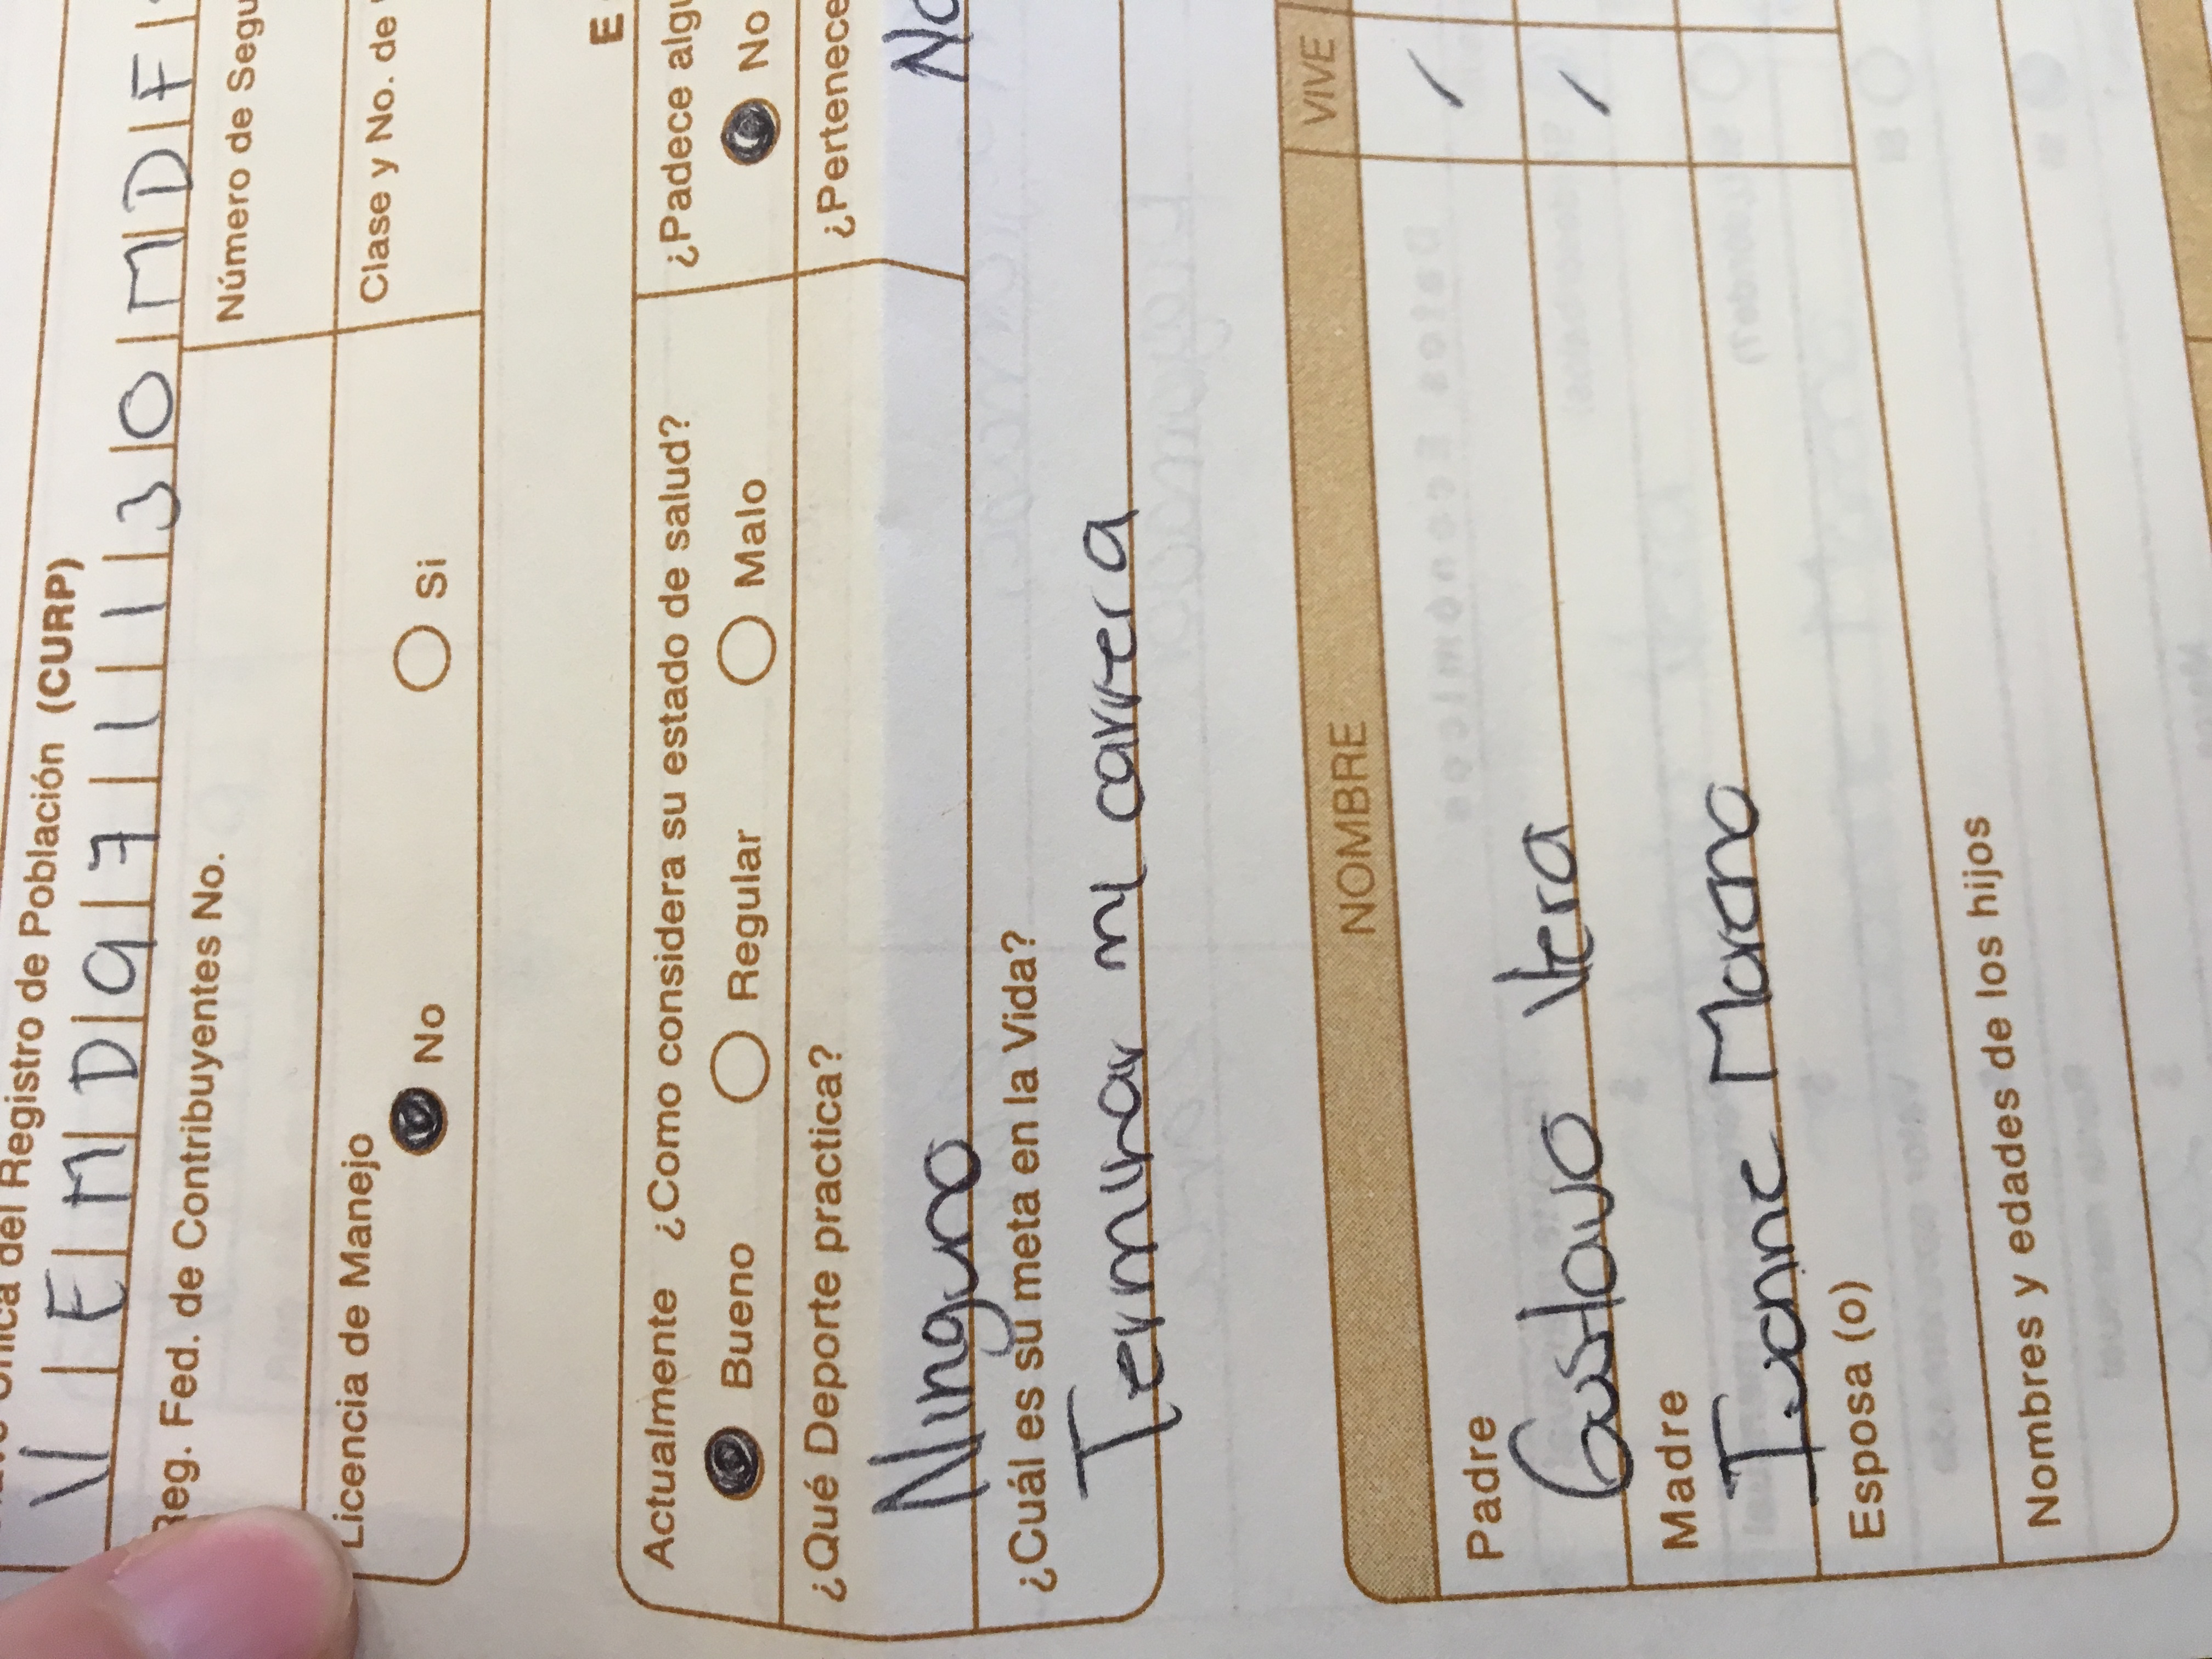 Única del Registro de Población (CURP)
V E M D 9 7 1 1 3 0 M D F
Reg. Fed. de Contribuyentes No.
Número de Segu
Licencia de Manejo
No Si
Clase y No. de
E
Actualmente ¿Como considera su estado de salud?
Bueno Regular Malo
¿Padece algu
No
¿Qué Deporte practica?
Ninguno
¿Pertenece
No
¿Cuál es su meta en la Vida?
Terminar mi carrera
NOMBRE VIVE
Padre
Gustavo Vera
Madre
Ivonne Moreno
Esposa (o)
Nombres y edades de los hijos